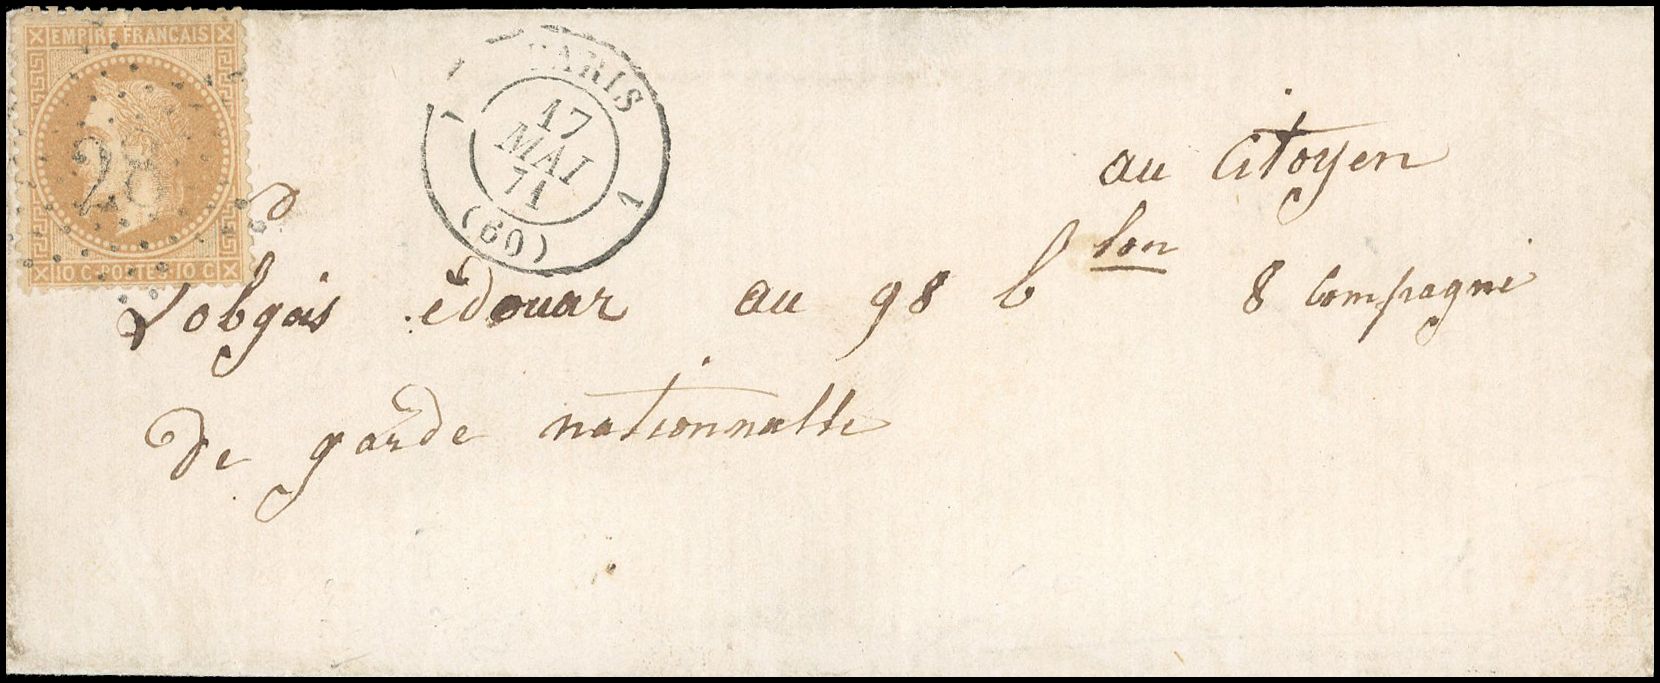 EMPIRE FRANCAIS
28
10 C·POSTES·10 C
PARIS
17
MAI
71
(60)
au Citoyen
Lobgois édouar au 98 b lon 8 Compagni
de garde nationnalle